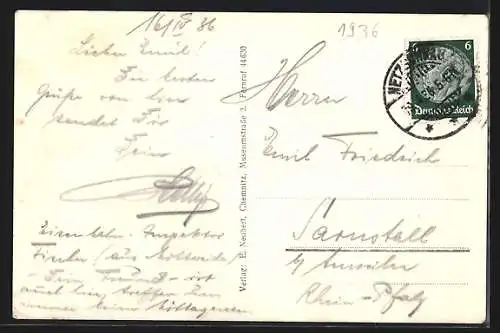 16/IV 36
1936
Lieber Emil!
Die besten
Grüße von hier
sendet Dir
Dein
Willy
Eisenbahn-Inspektor
Fischer (aus
- Dein Freund - ist
auch hier
immer
Verlag: E. Neubert, Chemnitz, Museumstraße 2. Fernruf 44630
6
Deutsches Reich
Herrn
Emil Friedrich
Sarnstall
b/ Annweiler
Rhein-Pfalz